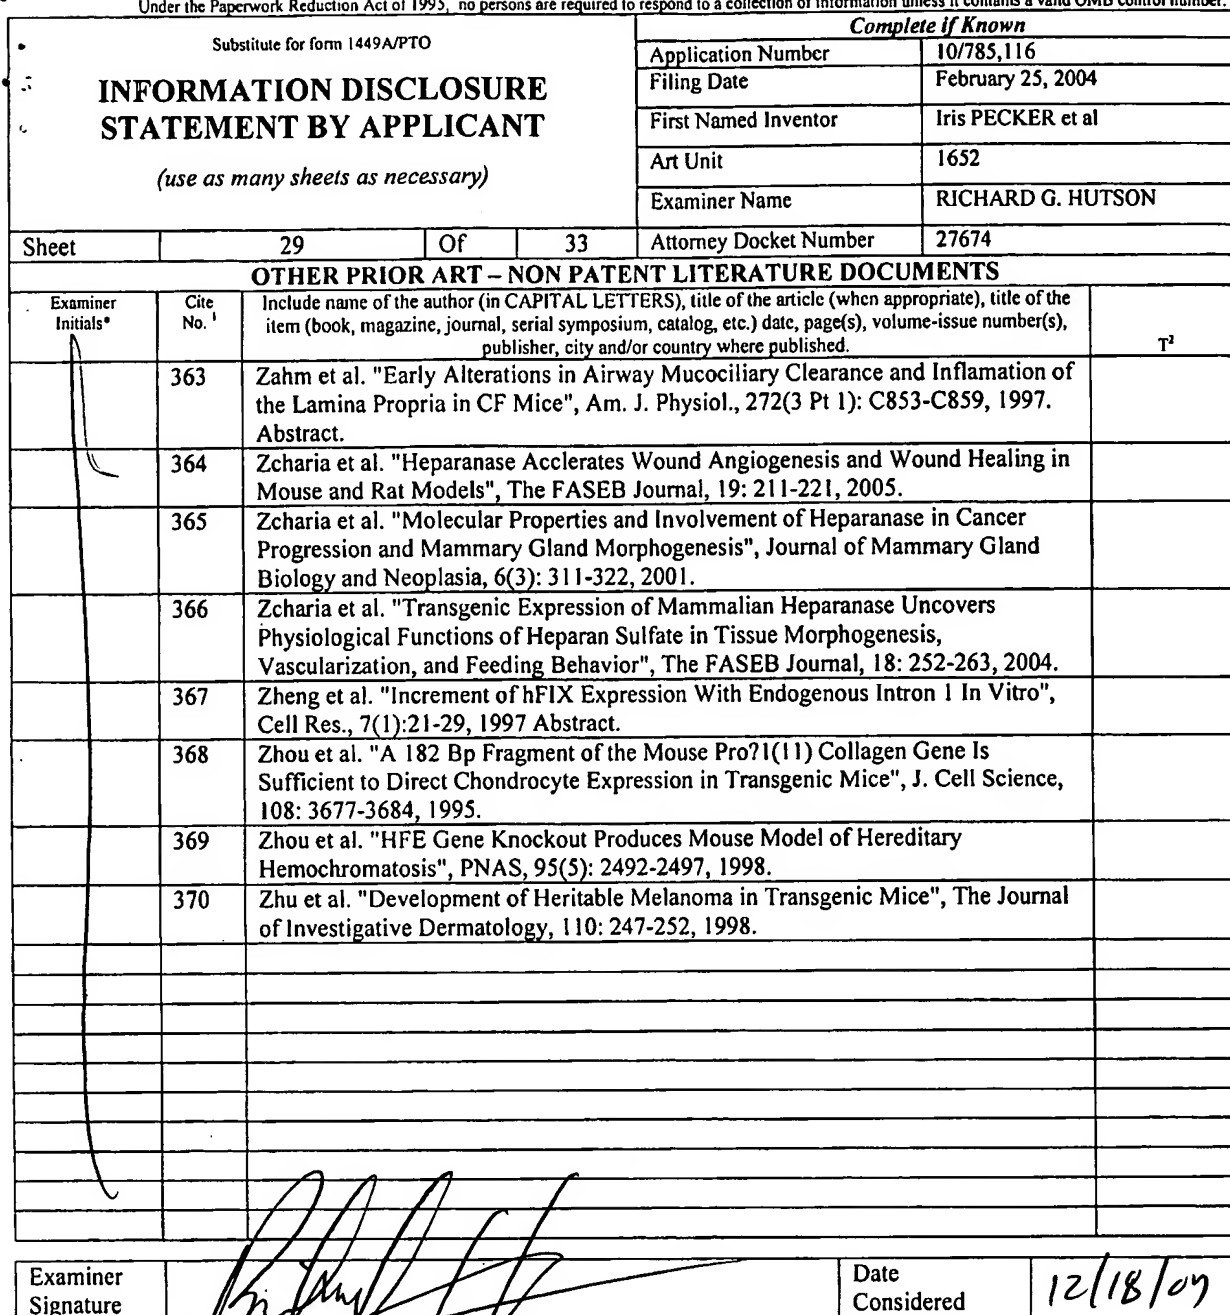 Under the Paperwork Reduction Act of 1995, no persons are required to respond to a collection of information unless it contains a valid OMB control number.
Substitute for form 1449A/PTO
INFORMATION DISCLOSURE
STATEMENT BY APPLICANT
(use as many sheets as necessary)
Complete if Known
Application Number 10/785,116
Filing Date February 25, 2004
First Named Inventor Iris PECKER et al
Art Unit 1652
Examiner Name RICHARD G. HUTSON
Sheet 29 Of 33 Attorney Docket Number 27674
OTHER PRIOR ART – NON PATENT LITERATURE DOCUMENTS
Examiner
Initials*
Cite
No. 1
Include name of the author (in CAPITAL LETTERS), title of the article (when appropriate), title of the
item (book, magazine, journal, serial symposium, catalog, etc.) date, page(s), volume-issue number(s),
publisher, city and/or country where published.
T2
363 Zahm et al. "Early Alterations in Airway Mucociliary Clearance and Inflamation of
the Lamina Propria in CF Mice", Am. J. Physiol., 272(3 Pt 1): C853-C859, 1997.
Abstract.
364 Zcharia et al. "Heparanase Acclerates Wound Angiogenesis and Wound Healing in
Mouse and Rat Models", The FASEB Journal, 19: 211-221, 2005.
365 Zcharia et al. "Molecular Properties and Involvement of Heparanase in Cancer
Progression and Mammary Gland Morphogenesis", Journal of Mammary Gland
Biology and Neoplasia, 6(3): 311-322, 2001.
366 Zcharia et al. "Transgenic Expression of Mammalian Heparanase Uncovers
Physiological Functions of Heparan Sulfate in Tissue Morphogenesis,
Vascularization, and Feeding Behavior", The FASEB Journal, 18: 252-263, 2004.
367 Zheng et al. "Increment of hFIX Expression With Endogenous Intron 1 In Vitro",
Cell Res., 7(1):21-29, 1997 Abstract.
368 Zhou et al. "A 182 Bp Fragment of the Mouse Pro?1(11) Collagen Gene Is
Sufficient to Direct Chondrocyte Expression in Transgenic Mice", J. Cell Science,
108: 3677-3684, 1995.
369 Zhou et al. "HFE Gene Knockout Produces Mouse Model of Hereditary
Hemochromatosis", PNAS, 95(5): 2492-2497, 1998.
370 Zhu et al. "Development of Heritable Melanoma in Transgenic Mice", The Journal
of Investigative Dermatology, 110: 247-252, 1998.
Examiner
Signature
Date
Considered
12/18/07